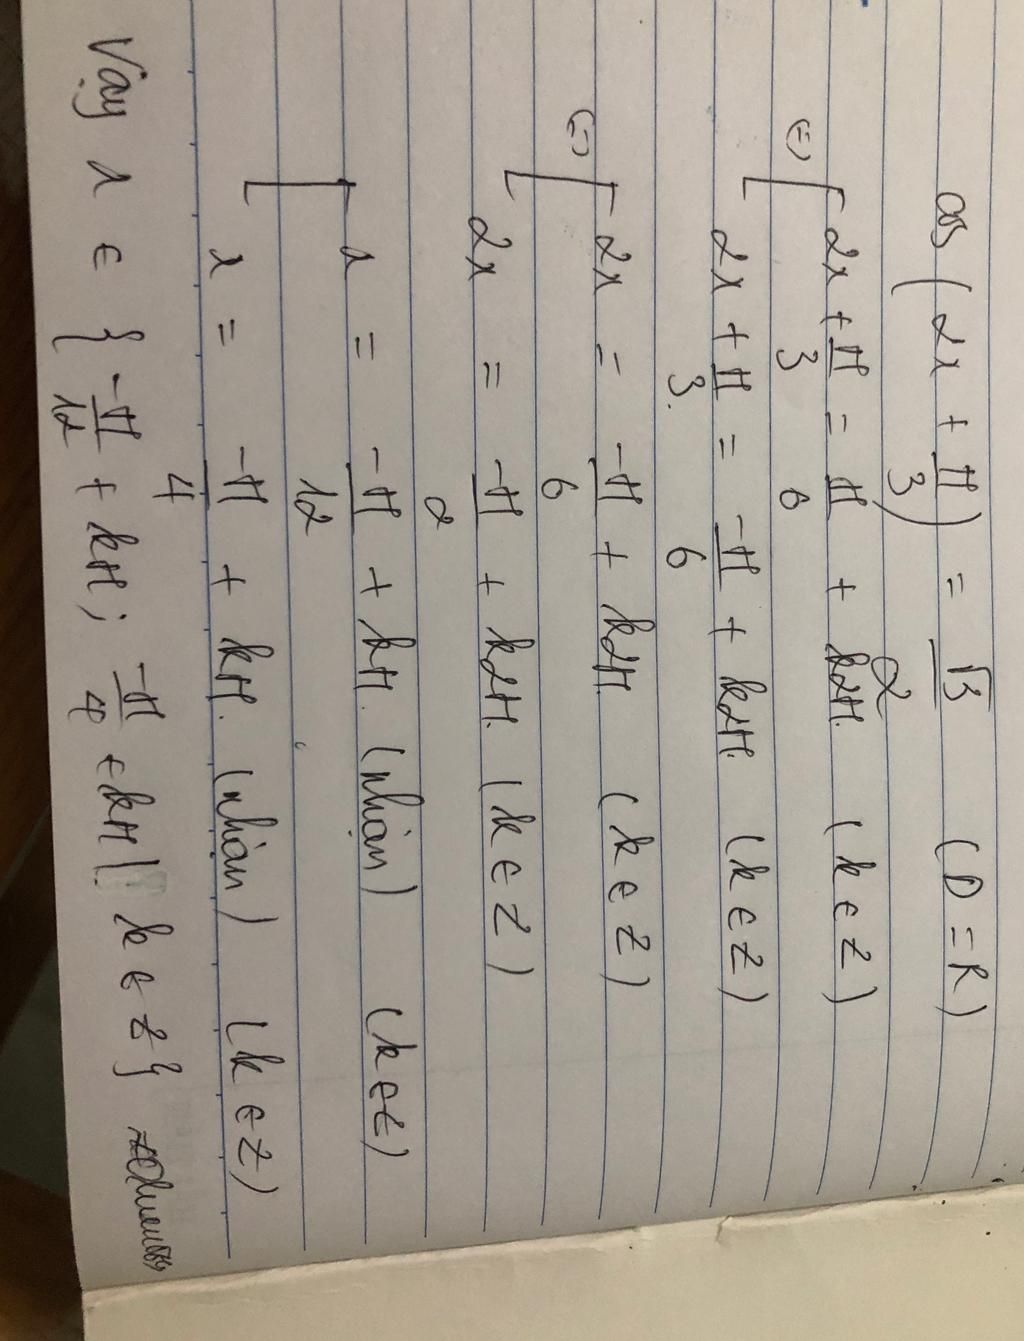 cos(2x + π/3) = √3/2 (D = R)
(=) [ 2x + π/3 = π/6 + k2π (k ∈ Z)
2x + π/3 = -π/6 + k2π (k ∈ Z)
(=) [ 2x = -π/6 + k2π (k ∈ Z)
2x = -π/2 + k2π (k ∈ Z)
[ x = -π/12 + kπ (nhận) (k ∈ Z)
x = -π/4 + kπ (nhận) (k ∈ Z)
Vậy x ∈ { -π/12 + kπ; -π/4 + kπ | k ∈ Z }